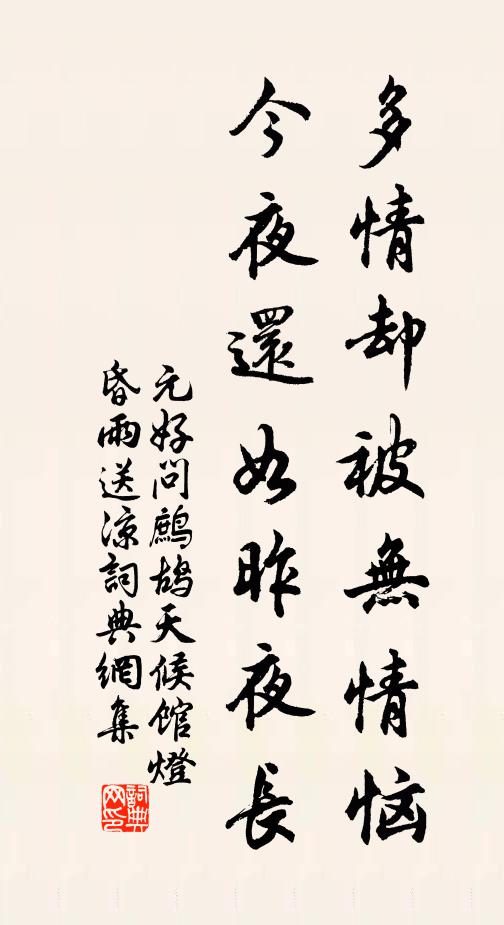 多情却被無情恼
今夜還如昨夜長
元好问鷓鴣天候館燈
昏雨送涼詞典網集
詞典网印